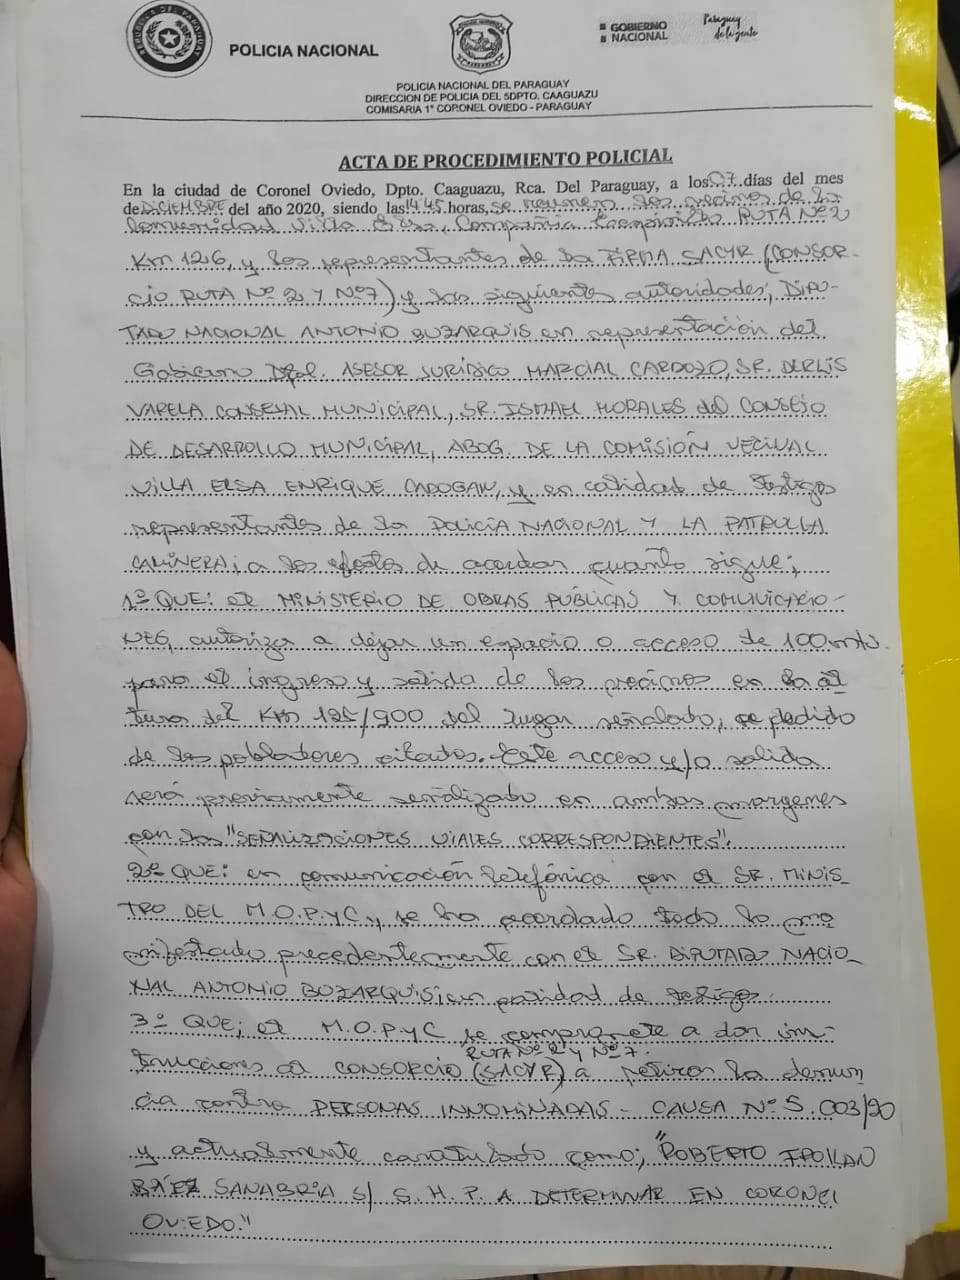 POLICIA NACIONAL
GOBIERNO
NACIONAL
Paraguay
de la gente
POLICIA NACIONAL DEL PARAGUAY
DIRECCION DE POLICIA DEL 5DPTO. CAAGUAZU
COMISARIA 1° CORONEL OVIEDO - PARAGUAY
ACTA DE PROCEDIMIENTO POLICIAL
En la ciudad de Coronel Oviedo, Dpto. Caaguazu, Rca. Del Paraguay, a los 07 días del mes
de DICIEMBRE del año 2020, siendo las 14:45 horas, se reunieron los vecinos de la
comunidad Villa Elsa, Compañia RUTA Nº 2
Km 126, y los representantes de la FIRMA SACYR (CONSOR-
cio RUTA Nº 2 Y Nº 7) y las siguientes autoridades; DIPU-
TADO NACIONAL ANTONIO BUZARQUIS en representación del
Gobierno Dptal. ASESOR JURÍDICO MARCIAL CARDOZO, SR. DERLIS
VARELA CONSEJAL MUNICIPAL, SR. ISMAEL MORALES del CONSEJO
DE DESARROLLO MUNICIPAL, ABOG. DE LA COMISIÓN VECINAL
VILLA ELSA ENRIQUE CADOGAN, y en calidad de testigos
representantes de la POLICIA NACIONAL Y LA PATRULLA
CAMINERA; a los efectos de acordar cuanto sigue;
1º QUE: el MINISTERIO DE OBRAS PÚBLICAS Y COMUNICACIO-
NES, autoriza a dejar un espacio o acceso de 100 mts.
para el ingreso y salida de los vecinos en la al
tura del Km 125/900 del lugar señalado, a pedido
de los pobladores citados. Este acceso y/o salida
será previamente señalizado en ambos margenes
con las "SEÑALIZACIONES VIALES CORRESPONDIENTES".
2º QUE: en comunicación telefónica con el SR. MINIS_
TRO DEL M.O.P.yC, y se ha acordado todo lo ma
nifestado precedentemente con el SR. DIPUTADO NACIO_
NAL ANTONIO BUZARQUIS, en calidad de testigo.
3º QUE; el M.O.P.yC se compromete a dar ins-
RUTA Nº 2 y Nº 7.
trucciones al CONSORCIO (SACYR) a retirar la denun
cia contra PERSONAS INNOMINADAS - CAUSA Nº 5.003/20
y actualmente caratulado como; "ROBERTO
BÁEZ SANABRIA S/ S.H.P. A DETERMINAR EN CORONEL
OVIEDO."